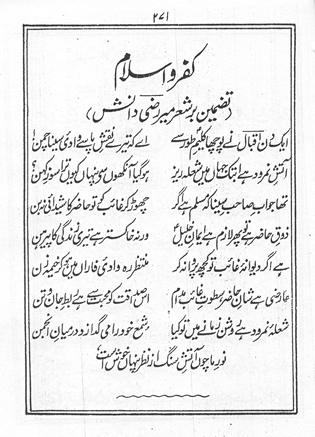 ۲۷۱
کفر و اسلام
(تضمین بر شعر میر رضی دانش)
ایک دن اقبال نے پوچھا کلیمِ طور سے اے کہ تیرے نقشِ پا سے وادیِ سینا چمن!
آتشِ نمرود ہے اب تک جہاں میں شعلہ ریز ہو گیا آنکھوں سے پنہاں کیوں ترا سوزِ کہن؟
تھا جوابِ صاحبِ سینا کہ مسلم ہے اگر چھوڑ کر غائب کو تو حاضر کا شیدائی نہ بن
ذوقِ حاضر ہے تو پھر لازم ہے ایمانِ خلیلؑ ورنہ خاکستر ہے تیری زندگی کا پیرہن
ہے اگر دیوانۂ غائب تو کچھ پروا نہ کر منتظر رہ وادیِ فاراں میں ہو کر خیمہ زن
عارضی ہے شانِ حاضر سطوتِ غائب مدام اس صداقت کو محبت سے ہے ربطِ جان و تن
شعلۂ نمرود ہے روشن زمانے میں تو کیا شمع خود را می گدازد درمیانِ انجمن
نورِ ما چوں آتشِ سنگ از نظر پنہاں خوش است